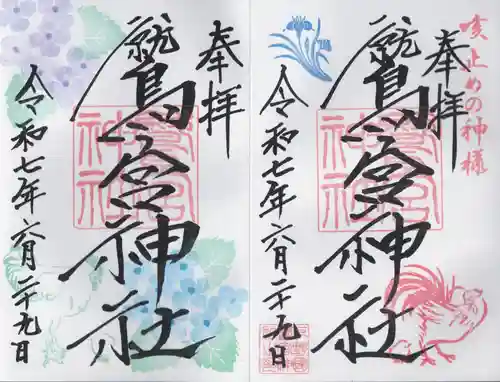 奉拝
鷲宮神社
令和七年六月二十九日
咳止めの神様
奉拝
鷲宮神社
令和七年六月二十九日